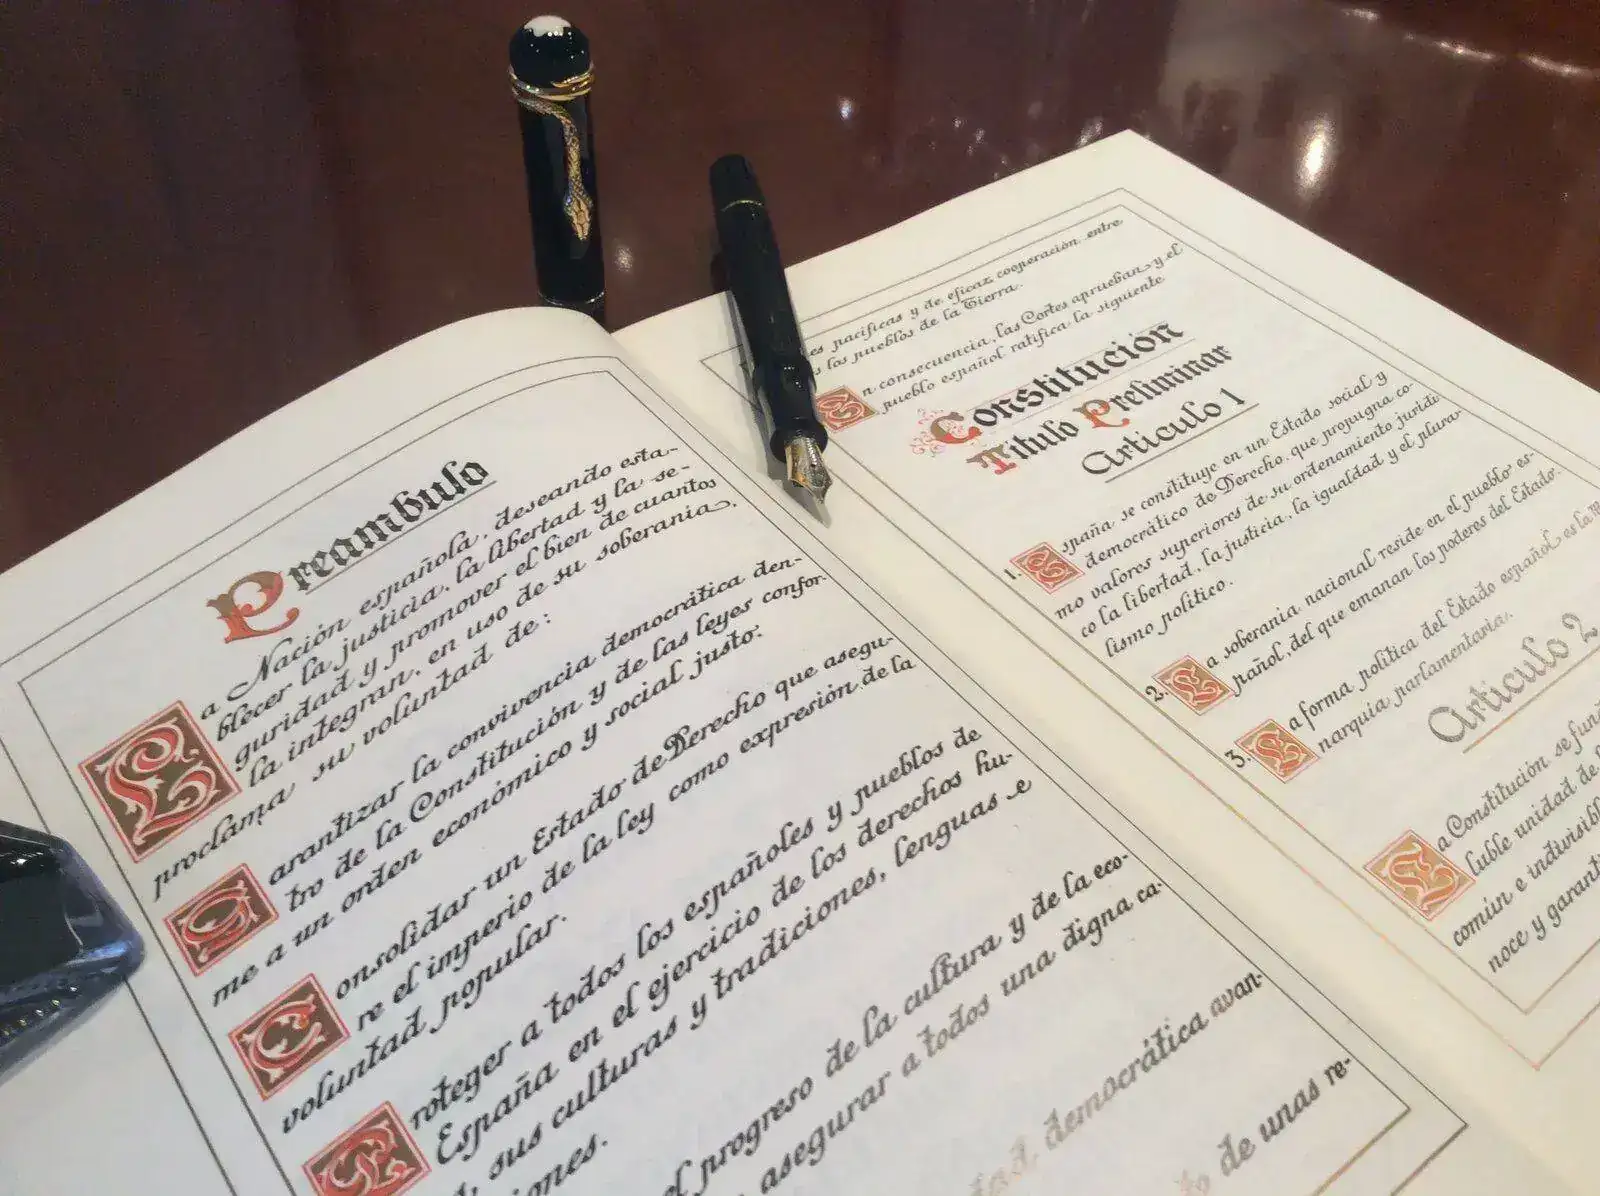 Preambulo
La Nación española, deseando esta-
blecer la justicia, la libertad y la se-
guridad y promover el bien de cuantos
la integran, en uso de su soberania,
proclama su voluntad de:
Garantizar la convivencia democrática den-
tro de la Constitución y de las leyes confor-
me a un orden económico y social justo.
Consolidar un Estado de Derecho que asegu-
re el imperio de la ley como expresión de la
voluntad popular.
Proteger a todos los españoles y pueblos de
España en el ejercicio de los derechos hu-
, sus culturas y tradiciones, lenguas e
iones.
el progreso de la cultura y de la eco-
asegurar a todos una digna ca-
democrática avan-
de unas re-
es pacificas y de eficaz cooperación entre
los pueblos de la Tierra.
En consecuencia, las Cortes aprueban y el
pueblo español ratifica la siguiente
Constitución
Titulo Preliminar
Articulo 1
1. España se constituye en un Estado social y
democrático de Derecho, que propugna co-
mo valores superiores de su ordenamiento juridi-
co la libertad, la justicia, la igualdad y el plura-
lismo politico.
2. La soberania nacional reside en el pueblo es-
pañol, del que emanan los poderes del Estado.
3. La forma politica del Estado español es la
narquia parlamentaria.
Articulo 2
La Constitución se fun
luble unidad de
común e indivisibl
noce y garanti